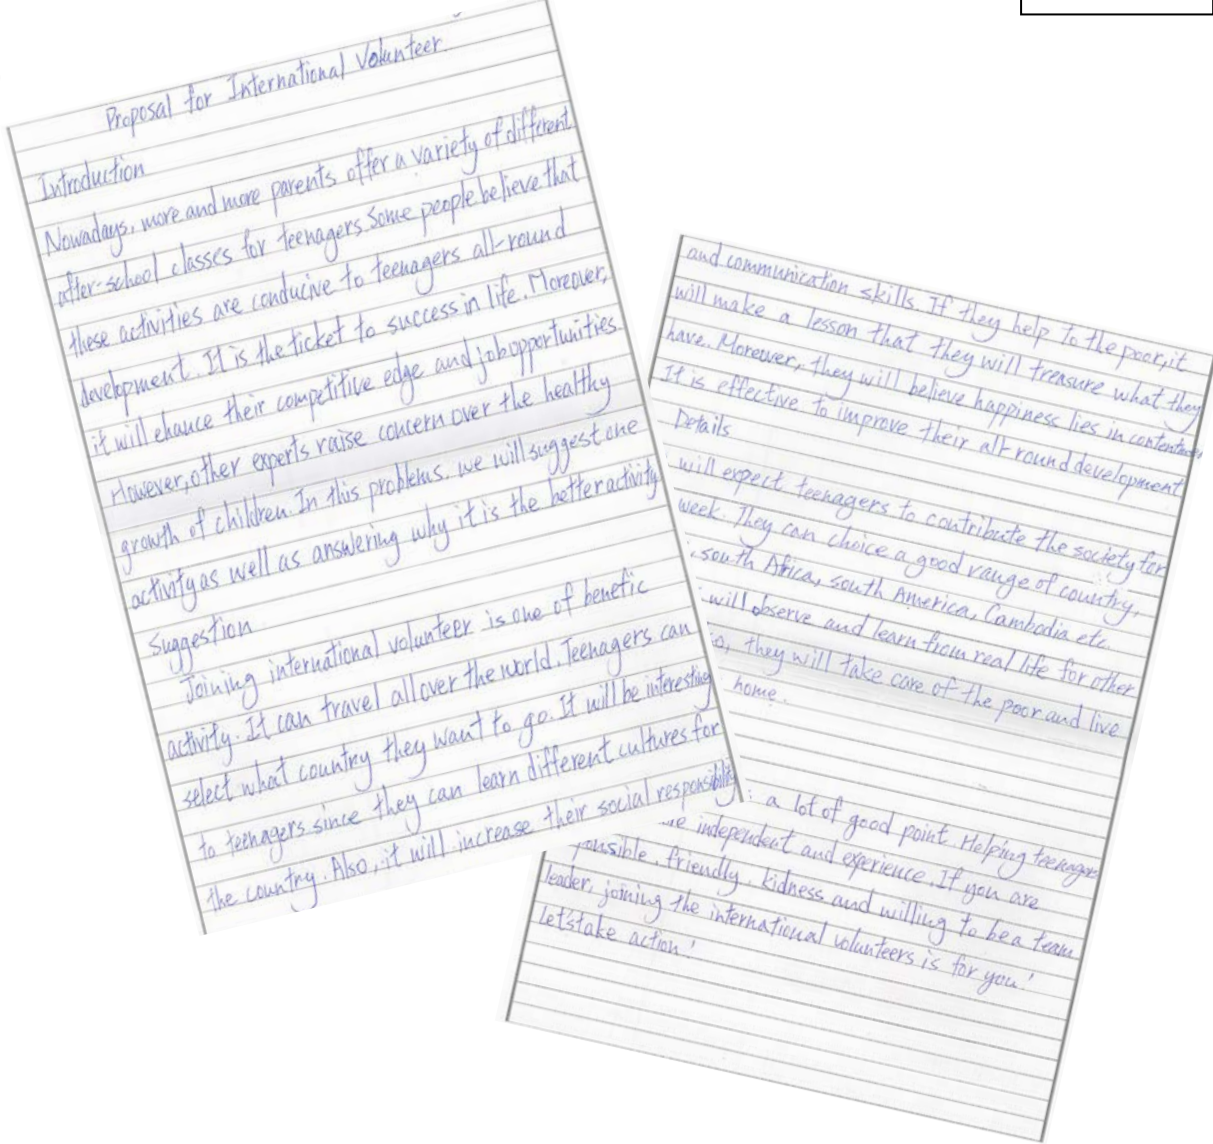 Proposal for International Volunteer
Introduction
Nowadays, more and more parents offer a variety of different
after-school classes for teenagers. Some people believe that
these activities are conducive to teenagers all-round
development. It is the ticket to success in life. Moreover,
it will ehance their competitive edge and job opportunities.
However, other experts raise concern over the healthy
growth of children. In this problems, we will suggest one
activity as well as answering why it is the better activity
Suggestion
Joining international volunteer is one of benefic
activity. It can travel all over the world. Teenagers can
select what country they want to go. It will be interesting
to teenagers since they can learn different cultures for
the country. Also, it will increase their social responsibility
and communication skills. If they help to the poor, it
will make a lesson that they will treasure what they
have. Moreover, they will believe happiness lies in
It is effective to improve their all-round development
Details
will expect teenagers to contribute the society for
week. They can choice a good range of country,
south Africa, south America, Cambodia etc.
will observe and learn from real life for other
they will take care of the poor and live
home.
a lot of good point. Helping teenagers
independent and experience. If you are
friendly, kidness and willing to be a team
leader, joining the international volunteers is for you!
Let's take action!